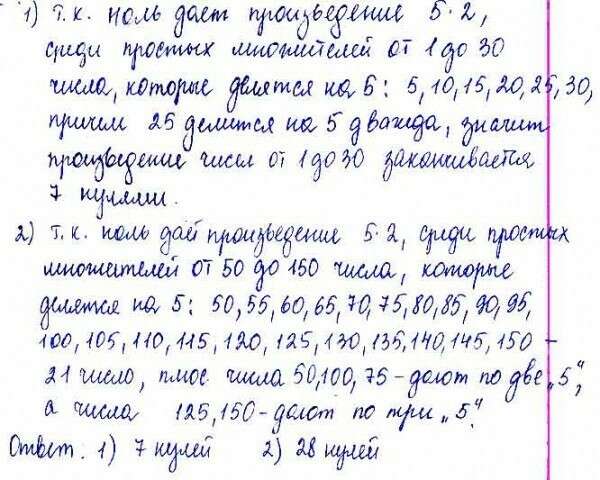 1) т.к. ноль дает произведение 5·2,
среди простых множителей от 1 до 30
числа, которые делятся на 5: 5, 10, 15, 20, 25, 30,
причем 25 делится на 5 дважды, значит
произведение чисел от 1 до 30 заканчивается
7 нулями.
2) т.к. ноль даёт произведение 5·2, среди простых
множителей от 50 до 150 числа, которые
делятся на 5: 50, 55, 60, 65, 70, 75, 80, 85, 90, 95,
100, 105, 110, 115, 120, 125, 130, 135, 140, 145, 150 –
21 число, плюс числа 50, 100, 75 – дают по две „5“,
а числа 125, 150 – дают по три „5“.
Ответ: 1) 7 нулей 2) 28 нулей